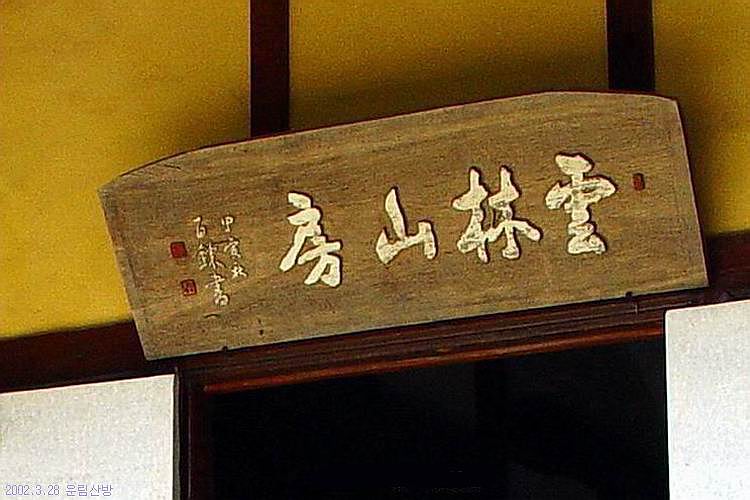 雲林山房
甲寅秋
百鍊書
2002.3.28 운림산방